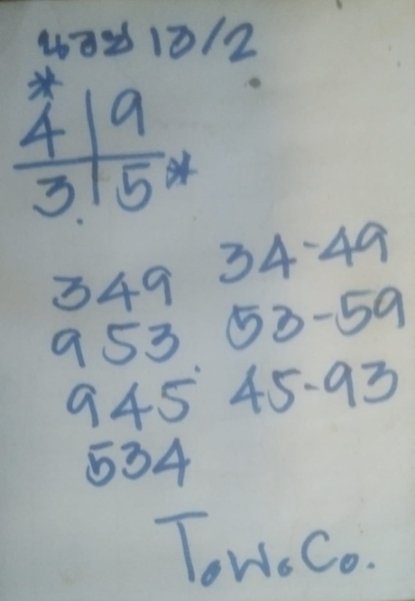 นอย 10/2
*
4 | 9
3. | 5 *
349 34-49
953. 53-59
945 45-93
534
T.W.Co.